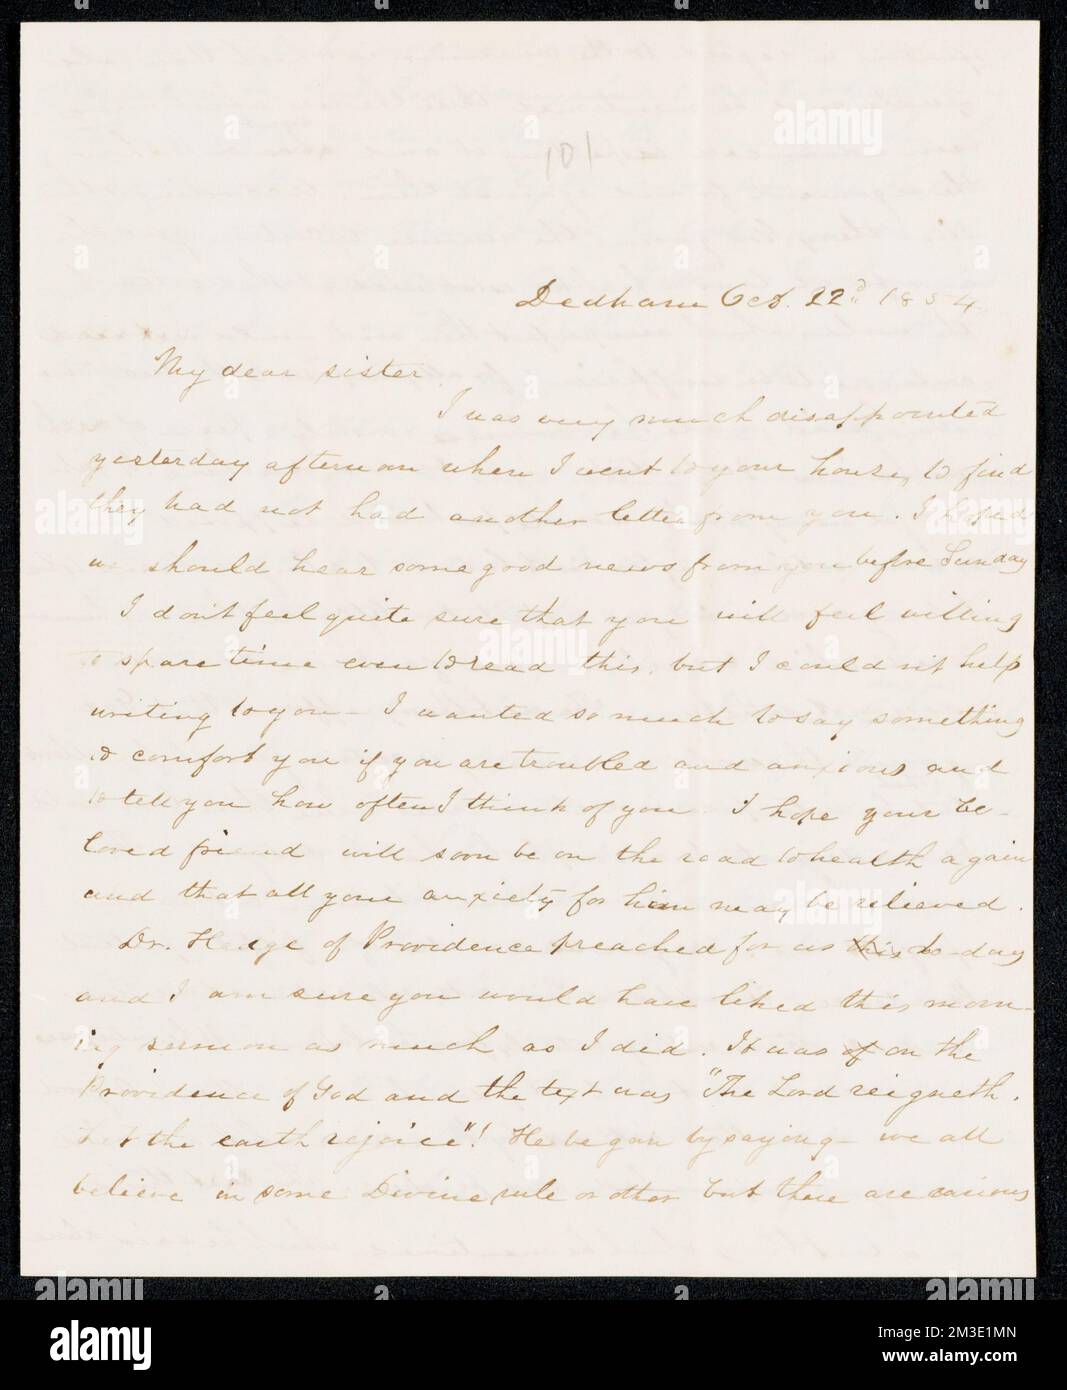 101
Dedham Oct. 22d 1854
My dear sister
I was very much disappointed
yesterday afternoon when I went to your house, to find
they had not had another letter from you. I hoped
we should hear some good news from you before Sunday
I don't feel quite sure that you will feel willing
to spare time even to read this, but I could not help
writing to you - I wanted so much to say something
to comfort you if you are troubled and anxious and
to tell you how often I think of you. I hope your be-
loved friend will soon be on the road to health again
and that all your anxiety for him may be relieved.
Dr. Hedge of Providence preached for us this to-day
and I am sure you would have liked this morn-
ing sermon as much as I did. It was of on the
Providence of God and the text was "The Lord reigneth.
Let the earth rejoice"! He began by saying - we all
believe in some Divine rule or other but there are various
alamy
Image ID: 2M3E1MN
www.alamy.com